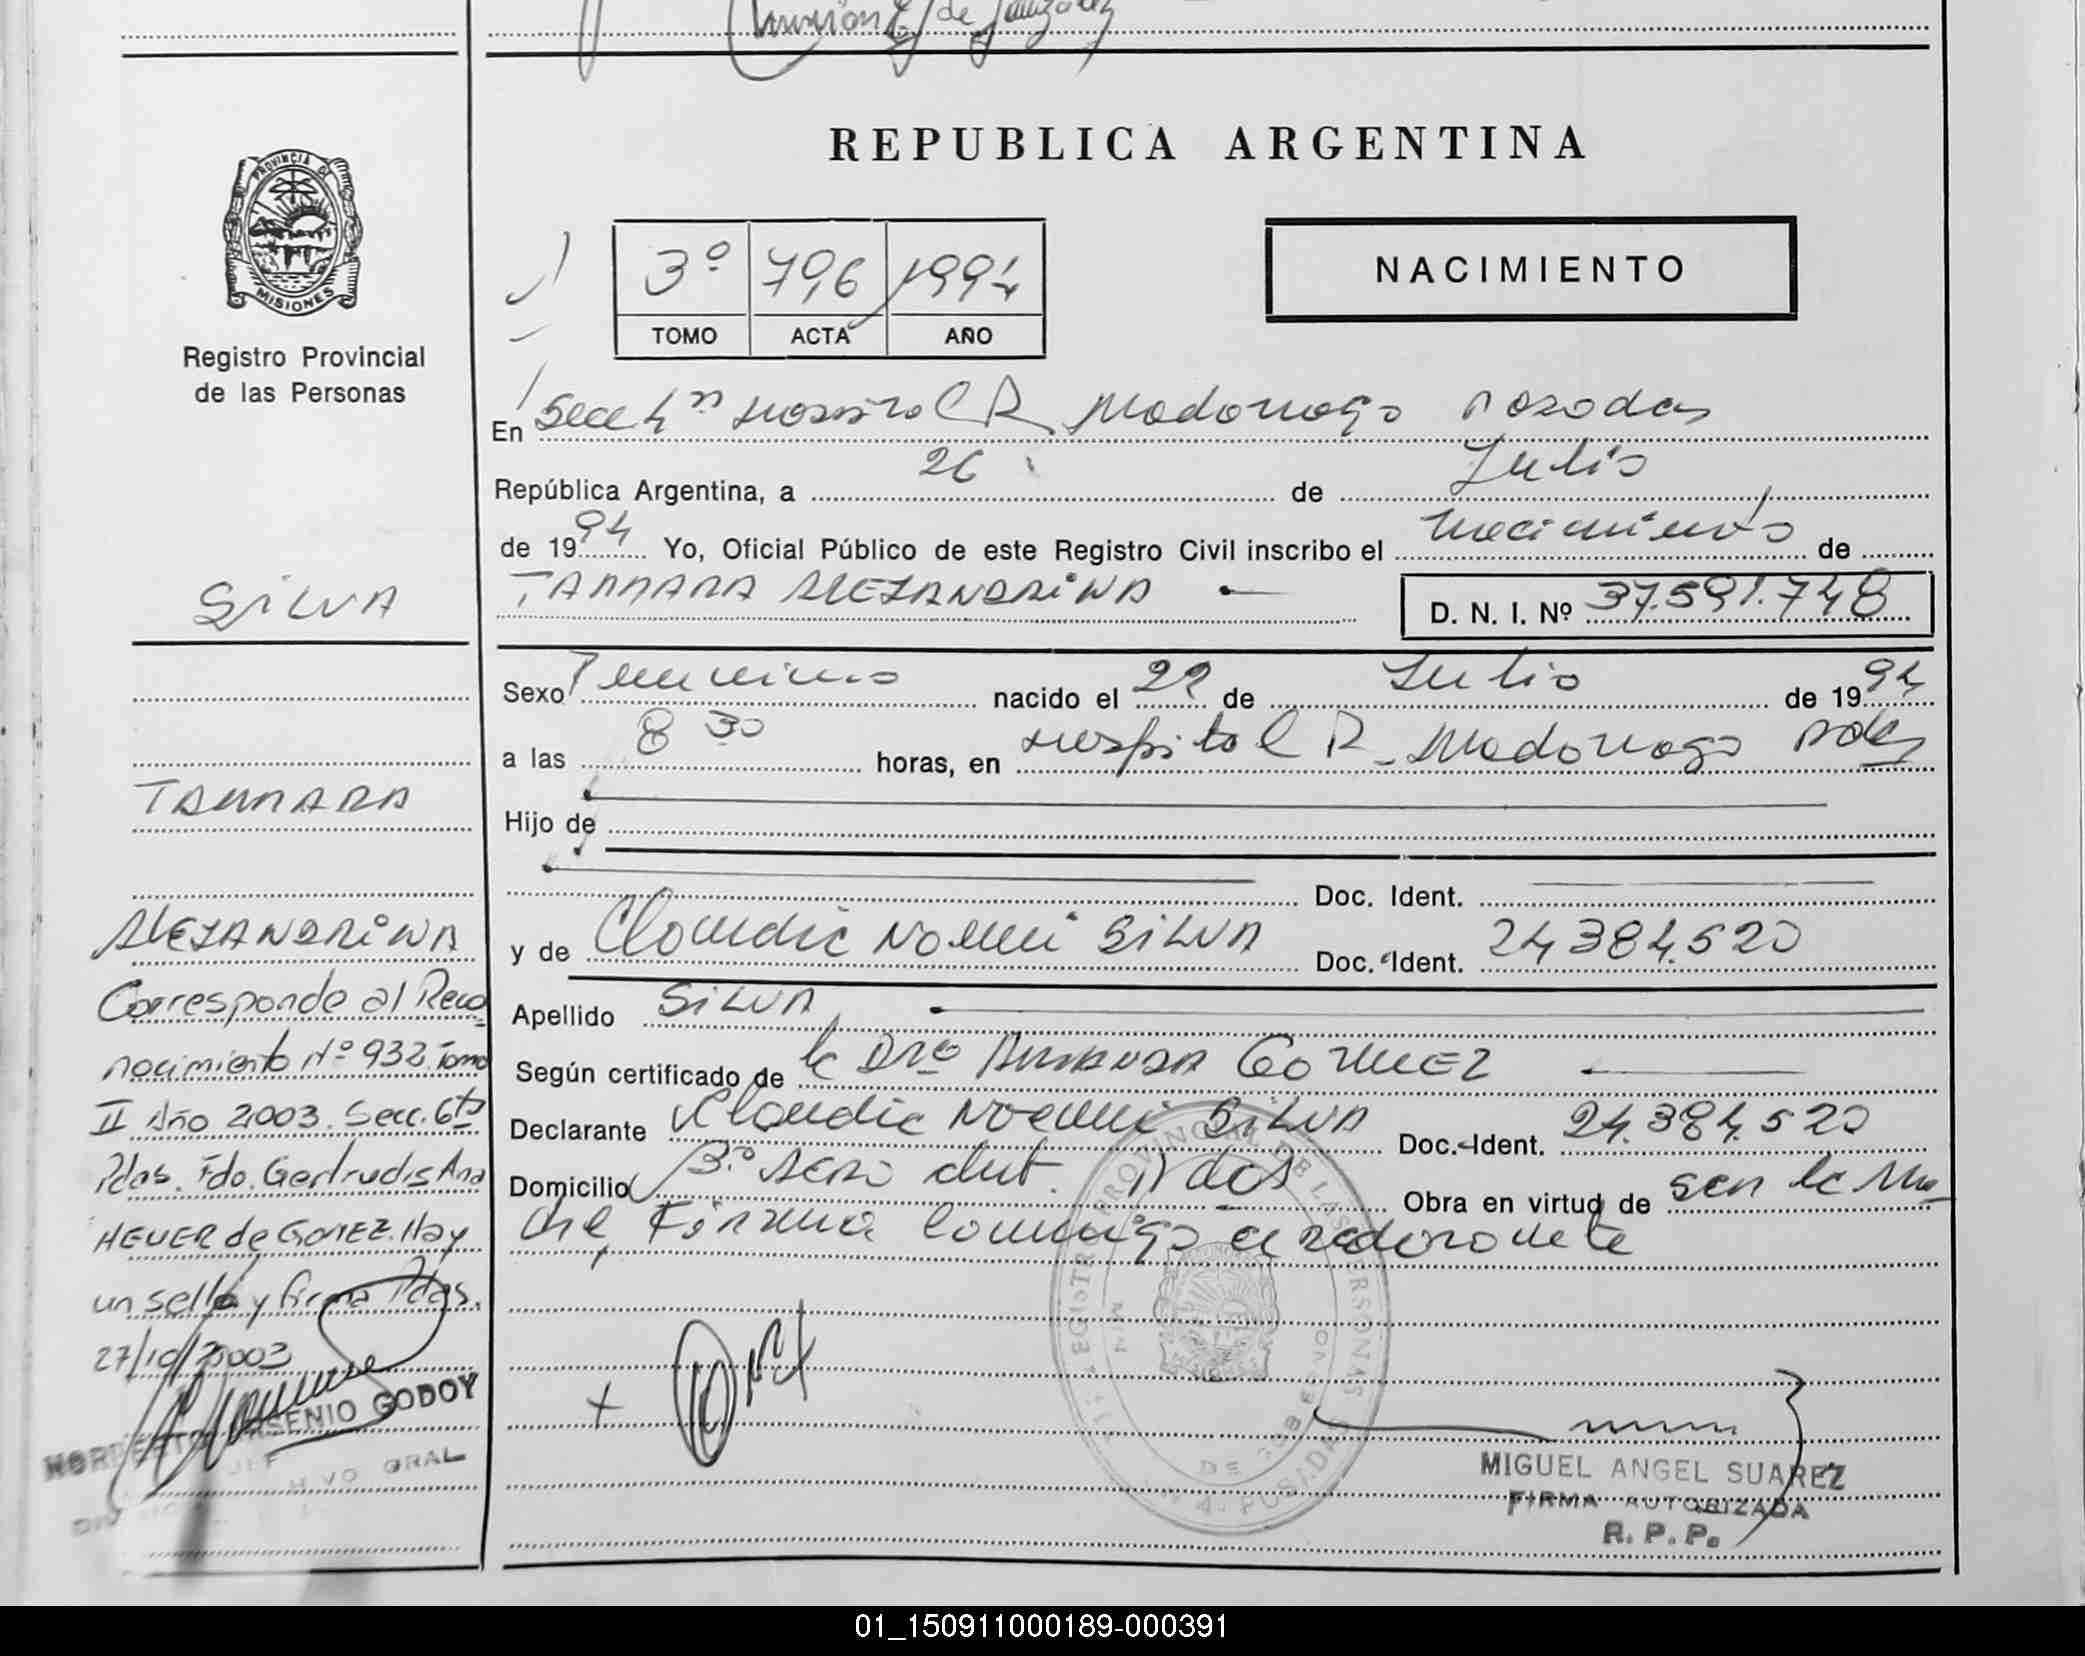 de Gonzalez
REPUBLICA ARGENTINA
PROVINCIA DE
MISIONES
Registro Provincial
de las Personas
3º 796 1994
TOMO ACTA AÑO
NACIMIENTO
En Secc 4ª Hospital R Madariaga Posadas
República Argentina, a 26 de Julio
de 1994 Yo, Oficial Público de este Registro Civil inscribo el nacimiento de
TAMARA ALEJANDRINA
D. N. I. Nº 37.591.748
Sexo Femenino nacido el 22 de Julio de 1994
a las 8 30 horas, en Hospital R. Madariaga Pdas
Hijo de
Doc. Ident.
y de Claudia Noemi SILVA Doc. Ident. 24.384.520
Apellido SILVA
Según certificado de la Dra AMANDA GOMEZ
Declarante Claudia Noemi SILVA Doc. Ident. 24.384.520
Domicilio Pdas Obra en virtud de ser la Ma-
dre, Firma conmigo
SILVA
TAMARA
ALEJANDRINA
Corresponde al Reco
nocimiento Nº 932 Tomo
II Año 2003. Secc. 6ta
Pdas. Fdo. Gertrudis Ana
HEUER de GOMEZ. Hay
un sello y firma Pdas.
27/10/2003
NORBERTO ARSENIO GODOY
REGISTRO PROVINCIAL DE LAS PERSONAS
DE GOBIERNO
4ª POSADAS
MIGUEL ANGEL SUAREZ
FIRMA AUTORIZADA
R. P. P.
01_150911000189-000391